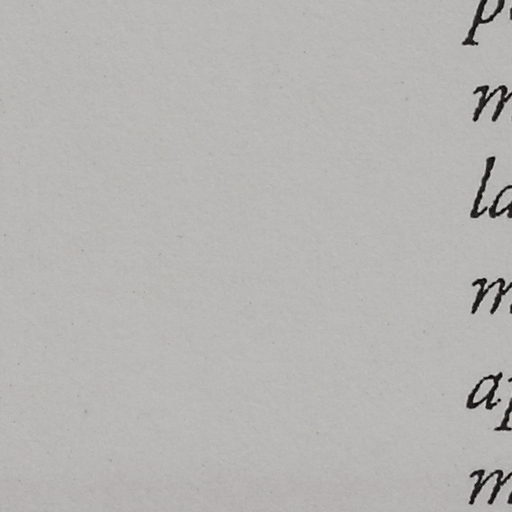 p
m
la
m
ap
m